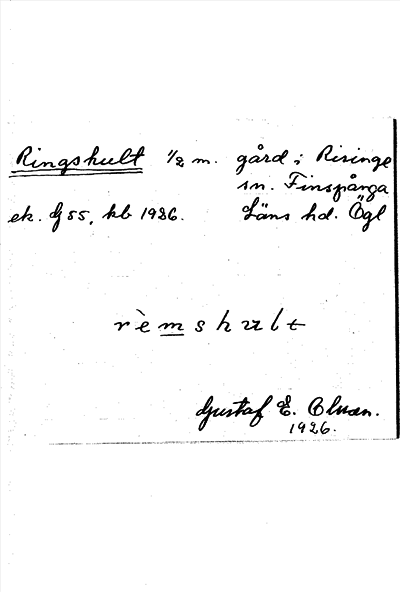 Ringshult 1/2 m. gård i Risinge
sn. Finspånga
ek. dj 55, kb 1926. Läns hd. Ögl
rèmshult
Gustaf E.
1926.